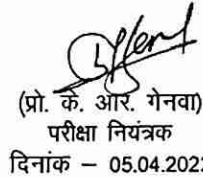 (प्रो. के. आर. गेनवा)
परीक्षा नियंत्रक
दिनांक – 05.04.202